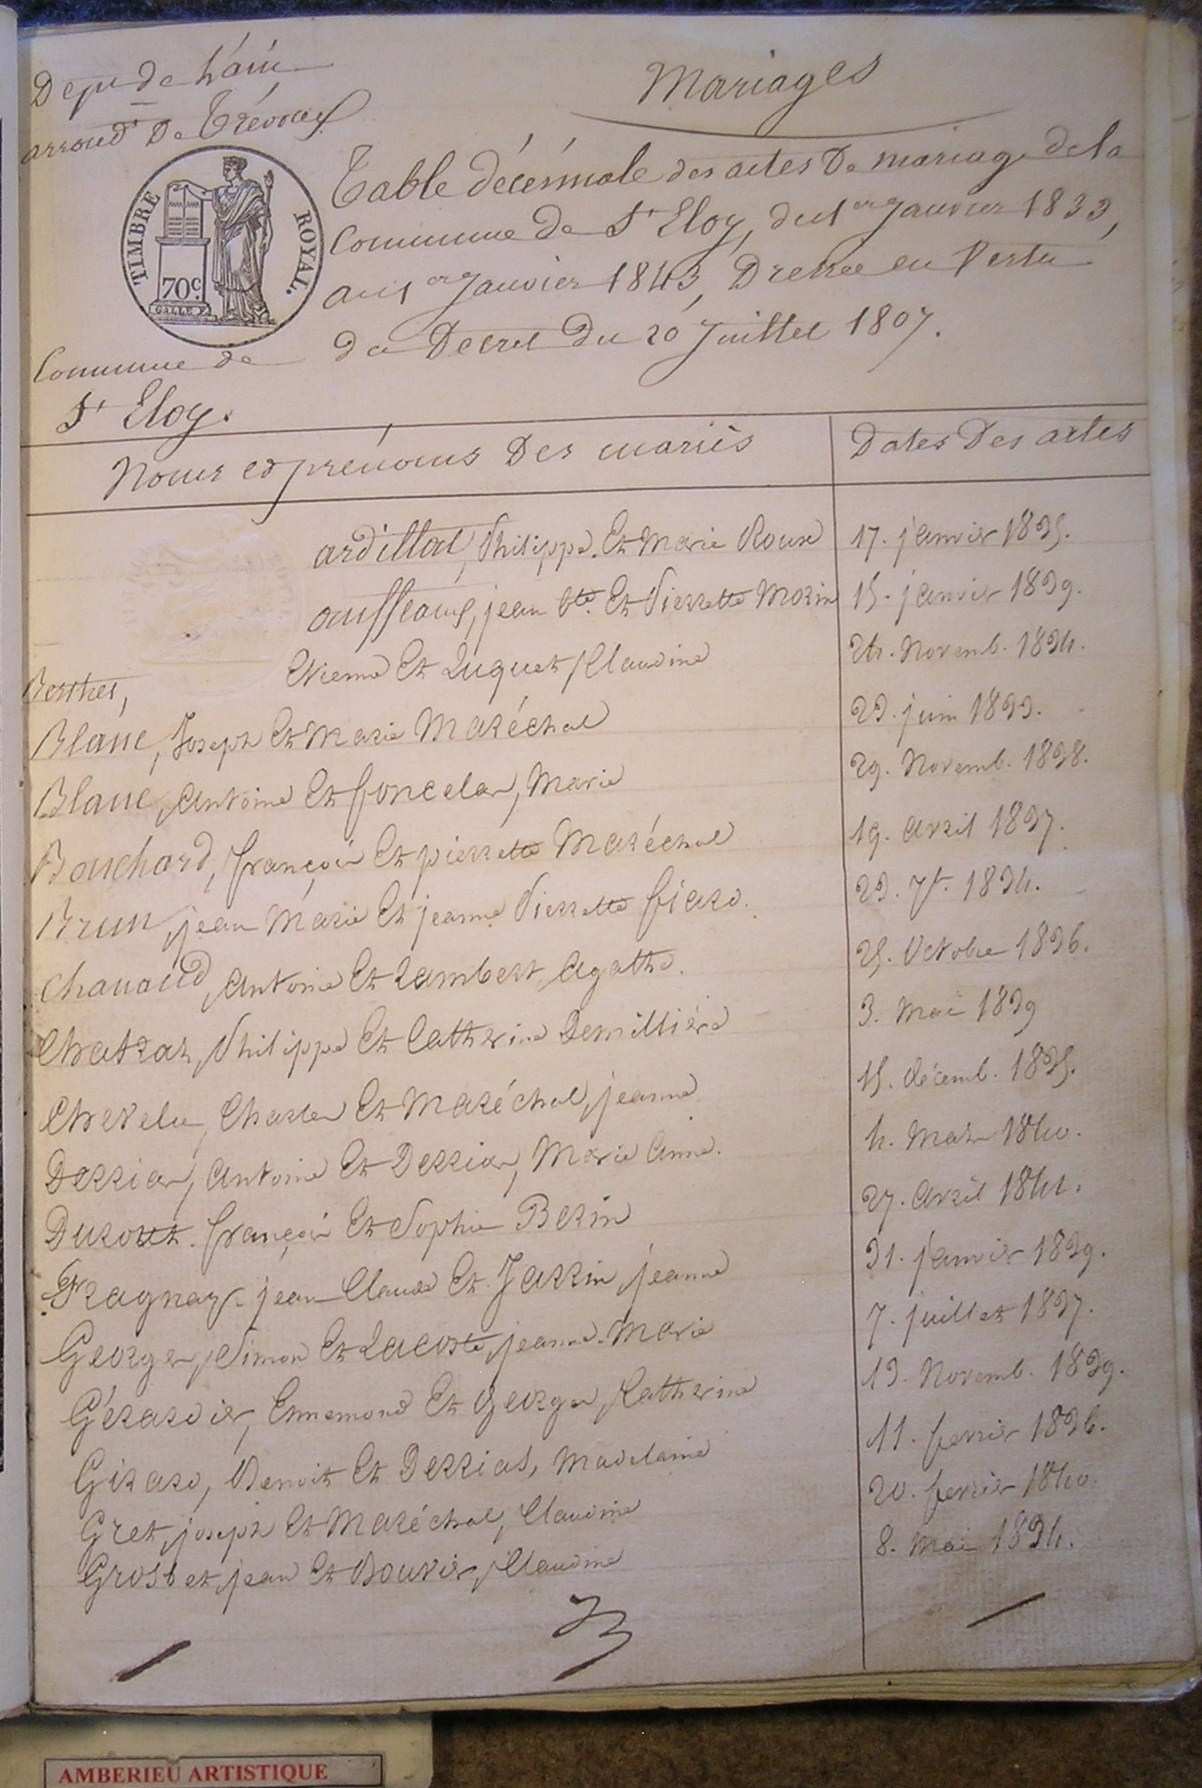 Depnt de L'ain
arrondt De Trévoux
TIMBRE ROYAL.
70c
Commune de
St Eloy.
Mariages
Table décennale des actes De mariage de la
Commune de St Eloy, du 1er Janvier 1833,
au 1er Janvier 1843, Dressée en Vertu
du Decret Du 20 Juillet 1807.
Noms et prénoms Des mariés
Dates Des actes
ardillat, Philippe. Et Marie Roux 17. janvier 1835.
jean bte. Et Pierrette Morin 15. janvier 1839.
Berthet, Etienne Et Luquet, Claudine 24. Novemb. 1834.
Blanc, Joseph Et Marie Maréchal 23. juin 1833.
Blanc, Antoine Et foncelas, Marie 29. Novemb. 1838.
Bouchard, françois Et pierrette Maréchal 19. avril 1837.
Brun, jean Marie Et jeanne Pierrette fiard. 23. 7bre. 1834.
Chanaud, Antoine Et Lambert, Agathe. 25. Octobre 1836.
Chatrat, Philippe Et Catherine Demillière 3. Mai 1839
Chevelu, Charles Et Maréchal, jeanne 15. décemb. 1835.
Derrias, Antoine Et Derrias, Marie Anne. 4. Mars 1840.
Duroux. françois Et Sophie Berin 27. avril 1841.
Fragnay. jean Claude Et. Jarrin, jeanne 31. janvier 1839.
Georges, Simon Et Lacoste, jeanne. Marie 7. juillet 1837.
Gérardier, Ennemond Et georges, Catherine 13. Novemb. 1839.
Girard, Benoit Et Derrias, Madelaine 11. fevrier 1836.
Gret, joseph Et Maréchal, Claudine 20. fevrier 1840.
Grosbet, jean Et Bouvier, Claudine 8. Mai 1834.
AMBERIEU ARTISTIQUE